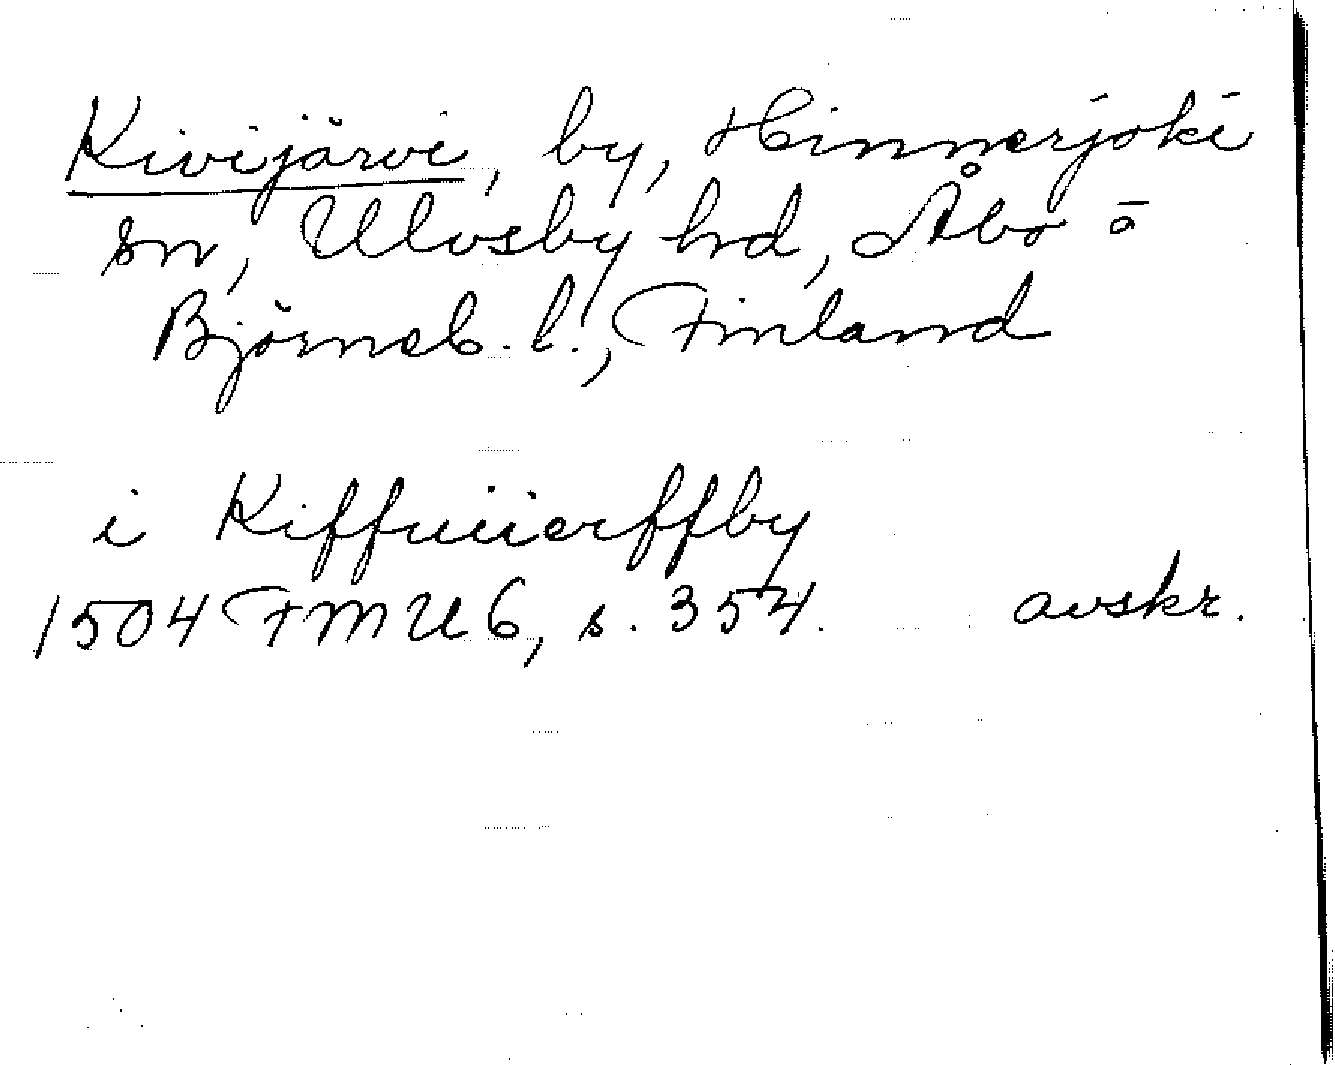 Kivijärvi, by, Hinnerjoki
sn, Ulvsby hd, Åbo o
Björneb. l., Finland
i Kiffuiierffby
1504 FMU 6, s. 354. avskr.